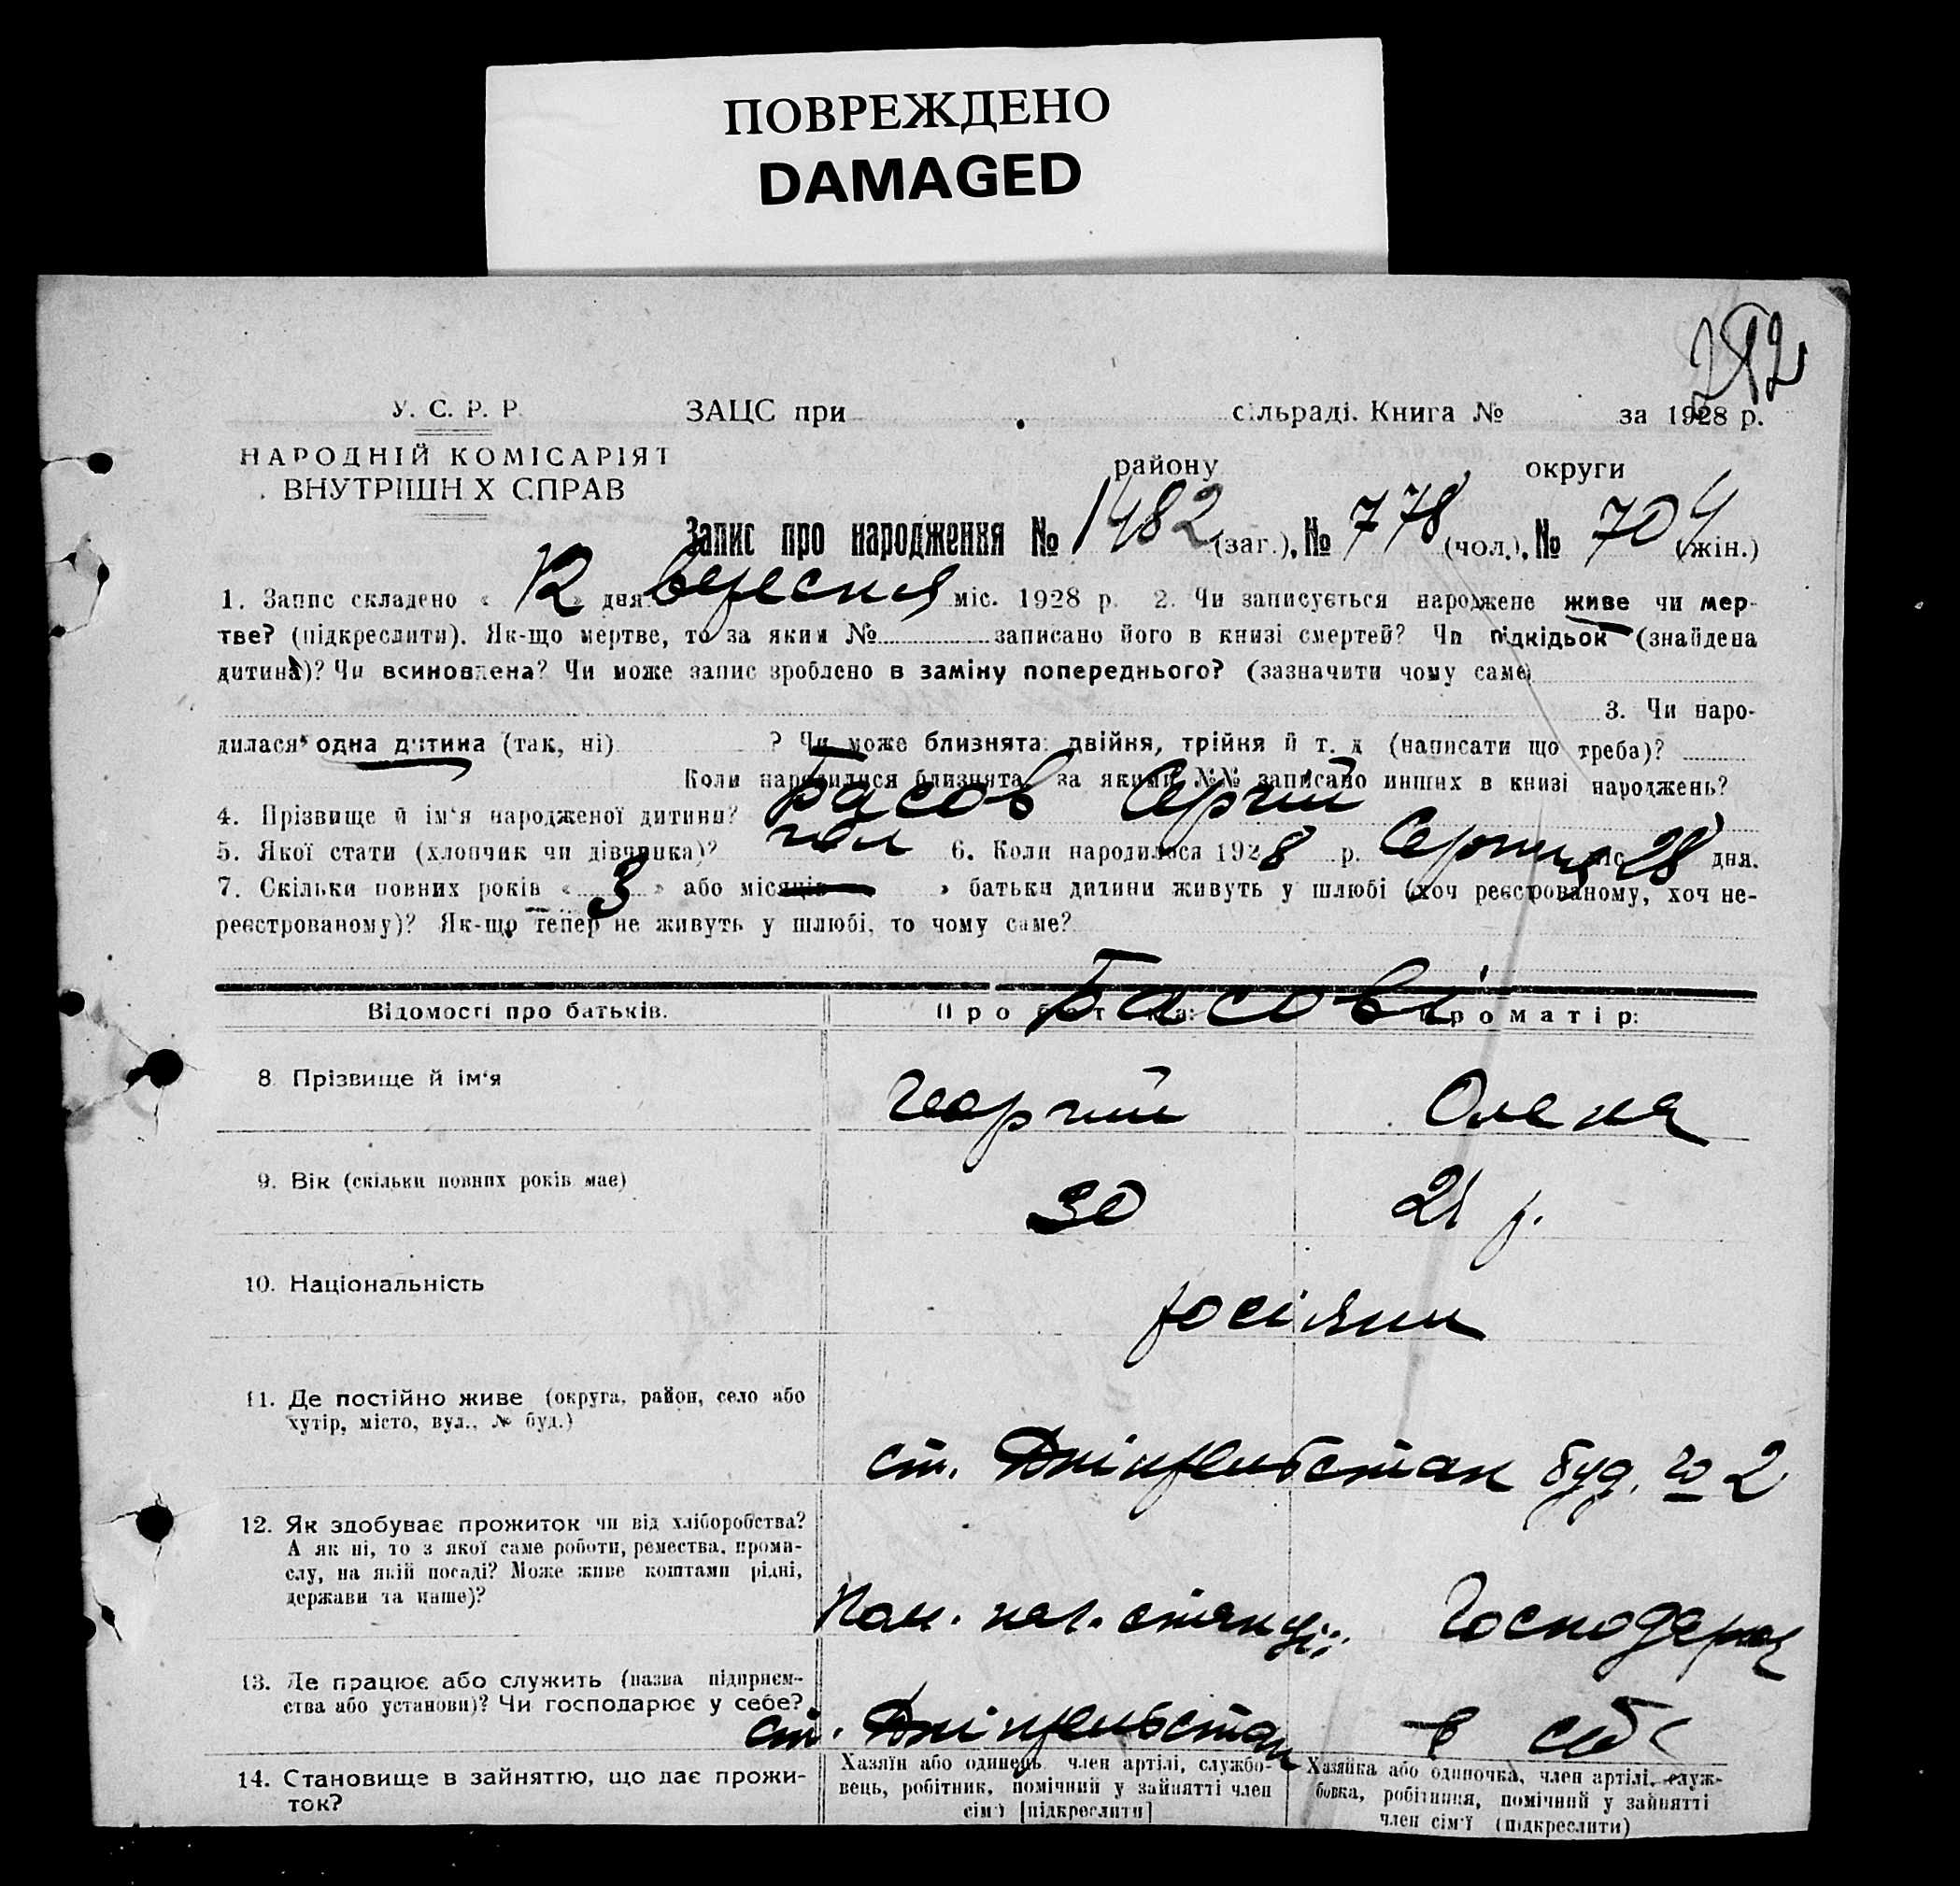 ПОВРЕЖДЕНО
DAMAGED
У. С. Р. Р.
ЗАЦС при сільраді. Книга № за 1928 р.
НАРОДНІЙ КОМІСАРІЯТ
району округи
ВНУТРІШН Х СПРАВ
Запис про народження № 1482 (заг.), № 778 (чол.), № 704 (жін.)
1. Запис складено « 12 » дня вересня міс. 1928 р. 2. Чи записується народжене живе чи мер-
тве? (підкреслити). Як-що мертве, то за яким № записано його в книзі смертей? Чи підкідьок (знайдена
дитина)? Чи всиновлена? Чи може запис зроблено в заміну попереднього? (зазначити чому саме)
3. Чи наро-
дилася одна дитина (так, ні) ? Чи може близнята: двійня, трійня й т. д (написати що треба)?
Коли народилися близнята за якими №№ записано инших в книзі народжень?
4. Прізвище й ім'я народженої дитини? Басов Сергій
5. Якої статі (хлопчик чи дівчинка)? чол 6. Коли народилося 1928 р. Серпня міс 28 дня.
7. Скільки повних років « 3 » або місяців » батьки дитини живуть у шлюбі (хоч реєстрованому, хоч не-
реєстрованому)? Як-що тепер не живуть у шлюбі, то чому саме?
Басові
Відомості про батьків. Про батька: Про матір:
8. Прізвище й ім'я Георгий Олена
9. Вік (скільки повних років має) 30 21 р.
10. Національність росіяни
11. Де постійно живе (округа, район, село або
хутір, місто, вул., № буд.)
ст. буд. № 2
12. Як здобуває прожиток чи від хліборобства?
А як ні, то з якої саме роботи, ремества, проми-
слу, на якій посаді? Може живе коштами рідні,
держави та инше)?
Пом. нач. станції Господарює
13. Де працює або служить (назва підприєм-
ства або установи)? Чи господарює у себе?
ст. в себе
14. Становище в зайняттю, що дає прожи-
ток?
Хазяїн або одинець, член артілі, службо-
вець, робітник, помічний у зайнятті член
сім'ї [підкреслити]
Хазяйка або одиночка, член артілі, служ-
бовка, робітниця, помічний у зайнятті
член сім'ї (підкреслити)